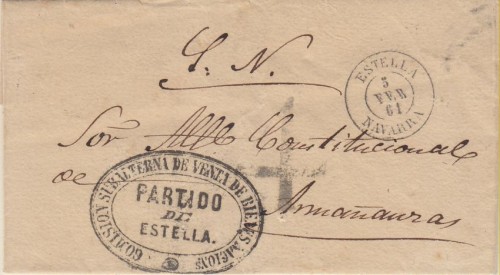 S. N.
ESTELLA
5
FEB
61
NAVARRA
Sor. Alle Constitucional
de Armañanzas
COMISION SUBALTERNA DE VENTA DE BIENES NACIONS
PARTIDO
DE
ESTELLA.